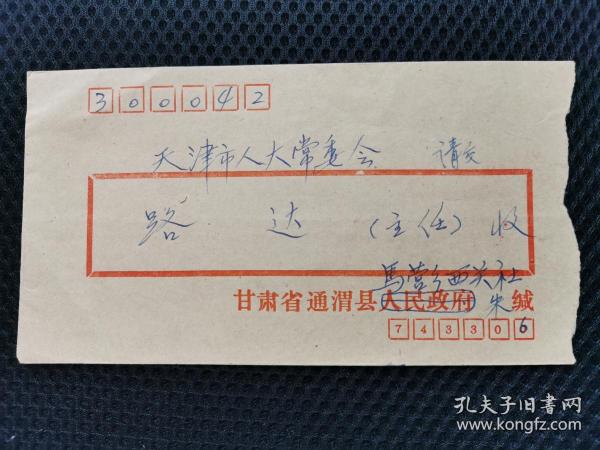 300042
天津市人大常委会 请交
路 达 （主任）收
馬营乡西关社
甘肃省通渭县人民政府 朱 缄
743306
孔夫子旧书网
kongfz.com